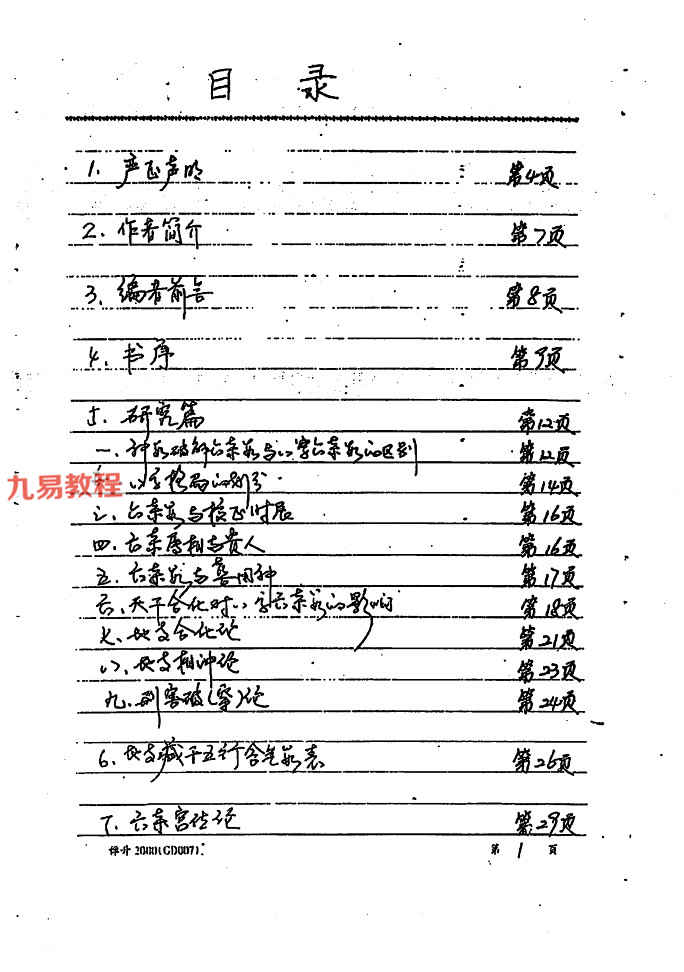 目 录
1、严正声明 第4页
2、作者简介 第7页
3、编者前言 第8页
4、书序 第9页
5、研究篇 第12页
一、神数破解六亲数与八字六亲数的区别 第12页
九易教程
八字格局的划分 第14页
三、六亲数与校正时辰 第16页
四、六亲属相与贵人 第16页
五、六亲数与喜用神 第17页
六、天干合化对八字六亲数的影响 第18页
七、地支合化论 第21页
八、地支相冲论 第23页
九、刑害破(穿)论 第24页
6、地支藏干五行含气数表 第26页
7、六亲宫位论 第29页
2000(GD007). 第 1 页